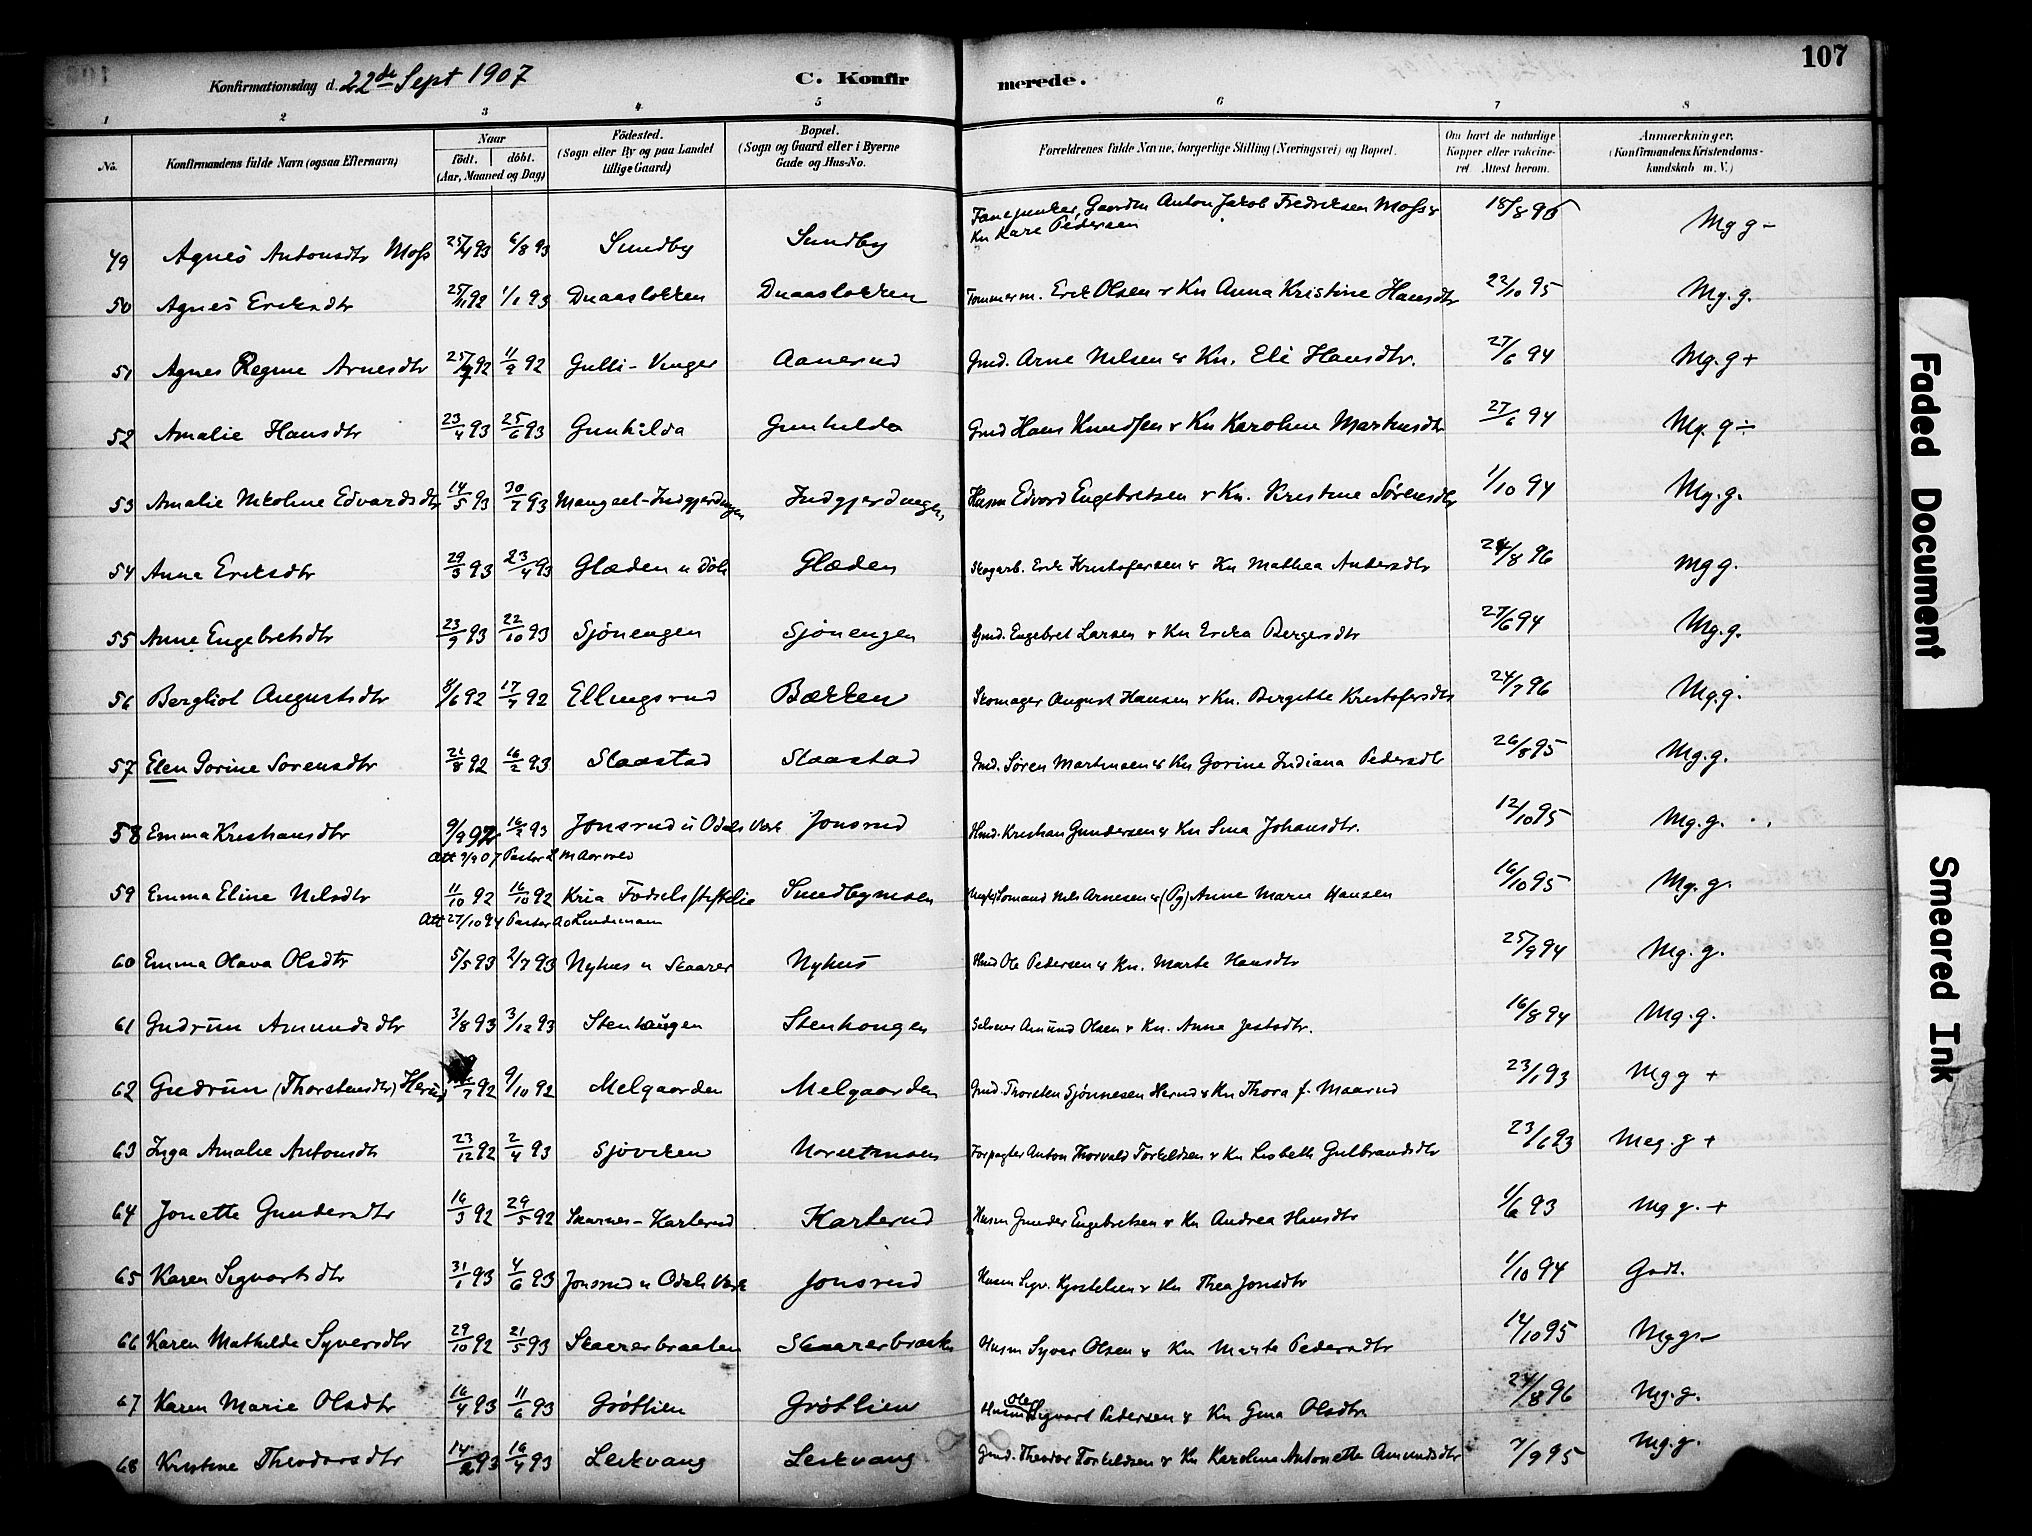 107
Konfirmationsdag d. 22de Sept 1907 C. Konfirmerede.
1 2 3 4 5 6 7 8
No. Konfirmandens fulde Navn (ogsaa Efternavn) Naar födt. döbt. (Aar, Maaned og Dag) Födested. (Sogn eller By og paa Landet tillige Gaard) Bopæl. (Sogn og Gaard eller i Byerne Gade og Hus-No. Forældrenes fulde Navne, borgerlige Stilling (Næringsvei) og Bopæl. Om havt de naturlige Kopper eller vakcineret. Attest herom. Anmærkninger. (Konfirmandens Kristendomskundskab m. V.)
Fanejunker, Gaardm Anton Jakob Fredriksen Moss &
49 Agnes Antonsdtr Moss 25/4 93 6/8 93 Sundby Sundby Kn Kare Pedersen 15/8 95 Mg g -
50 Agnes Eriksdtr 25/11 92 1/1 93 Dnaasløkken Dnaasløkken Tømmerm. Erik Olsen & Kn Anna Kristine Hansdtr 22/10 95 Mg. g.
51 Agnes Regine Arnesdtr 25/7 92 11/9 92 Gulli-Vinger Aanerud Gmd. Arne Nilsen & Kn. Eli Hansdtr. 27/6 94 Mg. g +
52 Amalie Hansdtr 23/4 93 25/6 93 Gunhilda Gunhilda Gmd Hans Knudsen & Kn Karoline Martinsdtr 27/6 94 Mg. g ÷
53 Amalie Nikoline Edvardsdtr 14/5 93 30/7 93 Mangset-Indgjerdingen Indgjerdingen Husm Edvard Engebretsen & Kn. Kristine Sørensdtr 1/10 94 Mg. g.
54 Anne Eriksdtr 29/3 93 23/4 93 Glæden Glæden Skogarb. Erik Kristofersen & Kn Mathea Andersdtr 24/8 96 Mg g.
55 Anne Engebretsdtr 23/9 93 22/10 93 Sjönengen Sjönengen Gmd. Engebret Larsen & Kn Erika Bergersdtr 27/6 94 Mg. g.
56 Bergliot Augustsdtr 8/6 92 17/7 92 Ellingsrud Bækken Skomager August Hansen & Kn. Bergitte Kristofersdtr 24/7 96 Mg. g.
57 Elen Gorine Sørensdtr 21/8 92 16/2 93 Slaastad Slaastad Gmd. Søren Martinsen & Kn Gorine Indiana Pedersdtr 26/8 95 Mg. g.
58 Emma Kristiansdtr 9/9 92 16/2 93 Jonsrud u Odals Værk Jonsrud Hmd. Kristian Gundersen & Kn Lina Johansdtr. 12/10 95 Mg. g.
Att 9/9 07 Pastor
59 Emma Eline Nilsdtr 11/10 92 16/10 92 Kria Fødselsstiftelse Sundbymoen Nils Arnesen & (Pg) Anne Marie Hansen 16/10 95 Mg. g.
Att 27/10 94 Pastor Lindemann
60 Emma Olava Olsdtr 5/5 93 2/7 93 Nyhus u Skaarer Nyhus Hmd Ole Pedersen & Kn. Marte Hansdtr 25/9 94 Mg. g.
61 Gudrun Amundsdtr 3/8 93 3/12 93 Stenhaugen Stenhougen Selveier Amund Olsen & Kn. Anne 16/8 94 Mg. g.
62 Gudrun (Thorstensdtr) Herud 92 9/10 92 Melgaarden Melgaarden Gmd. Thorsten Sjønnesen Herud & Kn Thora f. Maarud 23/1 93 Mg g +
63 Inga Amalie Antonsdtr 23/12 92 2/4 93 Sjøviken Forpagter Anton Thorvald Torkildsen & Kn Lisbeth Gulbrandsdtr 23/6 93 Meg. g +
64 Jonette Gundersdtr 16/3 92 29/5 92 Skarnes-Karterud Karterud Husm Gunder Engebretsen & Kn Andrea Hansdtr 1/6 93 Mg g. +
65 Karen Sigvartsdtr 31/1 93 4/6 93 Jonsrud u Odals Værk Jonsrud Husm Sigv. Kjostelsen & Kn Thea Jonsdtr 1/10 94 Godt.
66 Karen Mathilde Syversdtr 29/10 92 21/5 93 Skaarerbraaten Skaarerbraaten Husm Syver Olsen & Kn Marte Pedersdtr 14/10 95 Mg g -
67 Karen Marie Olsdtr 16/4 93 11/6 93 Grøtlien Grøtlien Husm Olaf Sigvart Pedersen & Kn Gina Olsdtr. 24/8 96 Mg. g.
68 Kristine Theodorsdtr 14/2 93 16/4 93 Leikvang Leikvang Gmd. Theodor Torkildsen & Kn Karoline Antonette Amundsdtr 7/9 95 Mg. g.
Faded Document
Smeared Ink